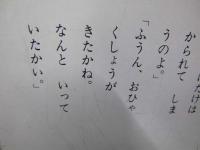 だけは
かられて しま
うのよ。」
「ふうん、おひゃ
くしょうが
きたかね。
なんと いって
いたかい。」